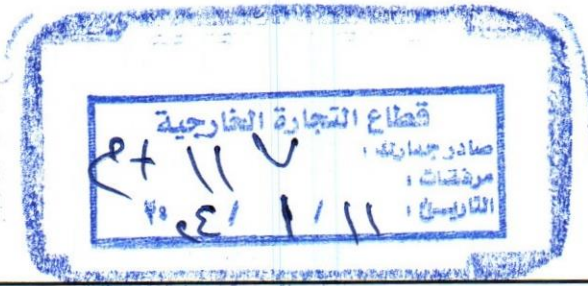 قطاع التجارة الخارجية
صادر جمارك : ١١٧
مرفقات :
التاريخ : ١١ / ١ /